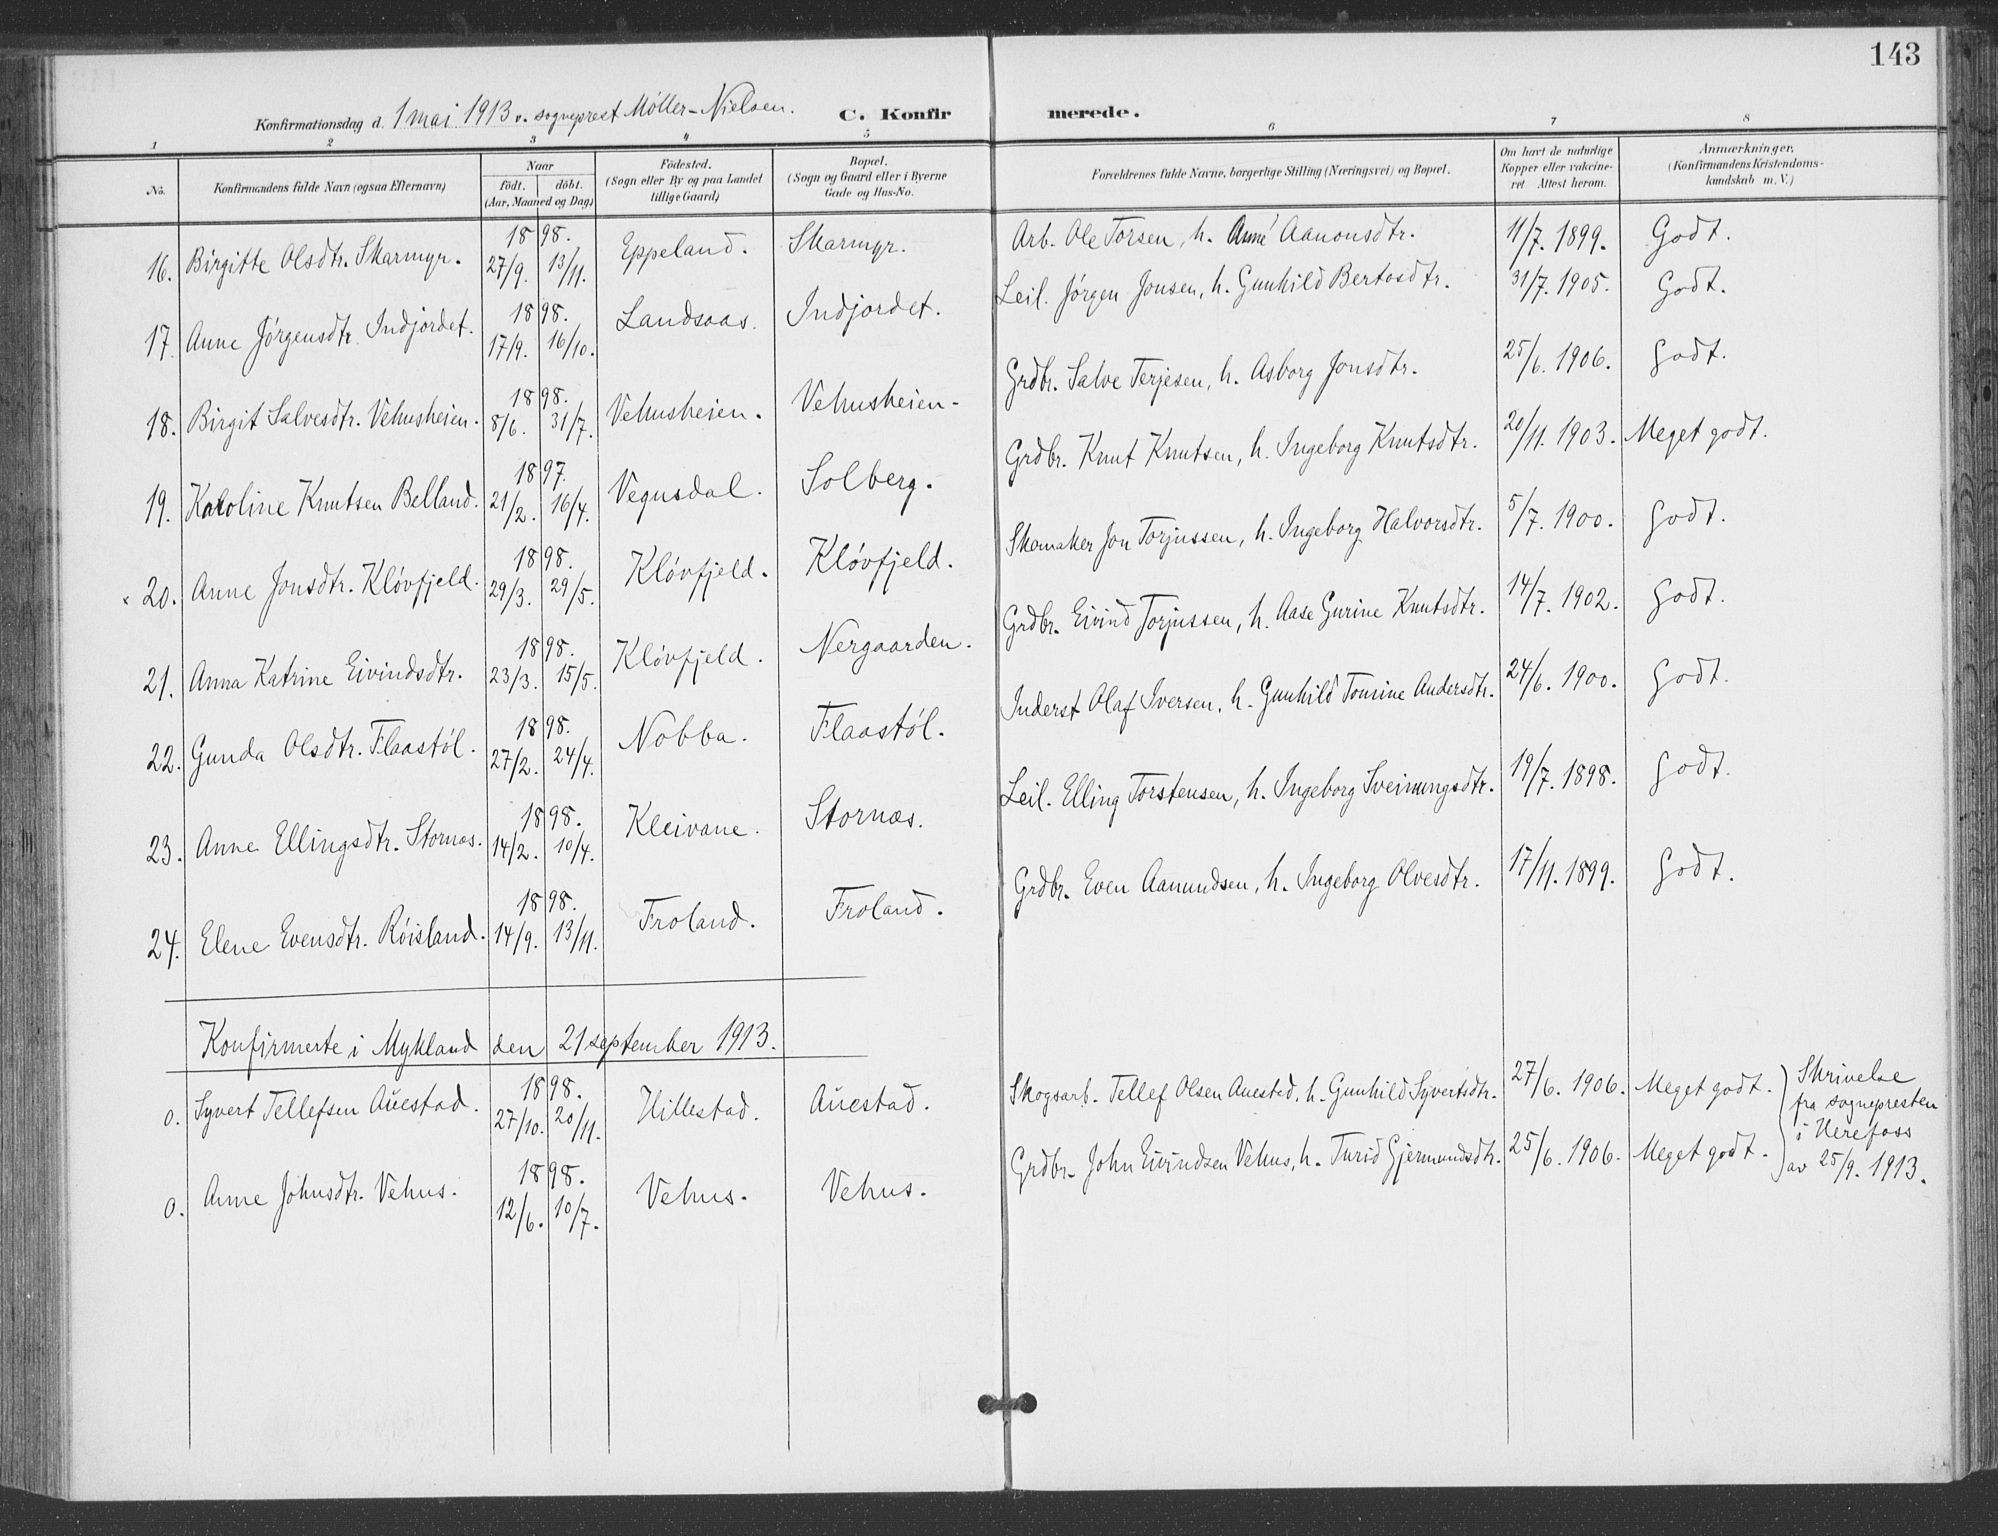 143
Konfirmationsdag d. 1 mai 1913 v. sogneprest Møller-Nielsen. C. Konfirmerede.
1 2 3 4 5 6 7 8
No. Konfirmandens fulde Navn (ogsaa Efternavn) Naar født. døbt. (Aar, Maaned og Dag) Fødested. (Sogn eller By og paa Landet tillige Gaard) Bopæl. (Sogn og Gaard eller i Byerne Gade og Hus-No. Forældrenes fulde Navne, borgerlige Stilling (Næringsvei) og Bopæl. Om havt de naturlige Kopper eller vakcineret. Attest herom. Anmærkninger. (Konfirmandens Kristendomskundskab m. V.)
16. Birgitte Olsdtr. Skarmyr. 1898. 27/9. 13/11. Eppeland. Skarmyr. Arb. Ole Torsen, h. Anne Aanonsdtr. 11/7. 1899. Godt.
17. Anne Jørgensdtr. Indjordet. 1898. 17/9. 16/10. Landsaas. Indjordet. Leil. Jørgen Jonsen, h. Gunhild Bertosdtr. 31/7. 1905. Godt.
18. Birgit Salvesdtr. Vehusheien. 1898. 8/6. 31/7. Vehusheien. Vehusheien. Grdbr. Salve Terjesen, h. Asborg Jonsdtr. 25/6. 1906. Godt.
19. Karoline Knutsen Belland. 1897. 21/2. 16/4. Vegusdal. Solberg. Grdbr. Knut Knutsen, h. Ingeborg Knutsdtr. 20/11. 1903. Meget godt.
× 20. Anne Jonsdtr. Kløvfjeld. 1898. 29/3. 29/5. Kløvfjeld. Kløvfjeld. Skomaker Jon Torjussen, h. Ingeborg Halvorsdtr. 5/7. 1900. Godt.
21. Anna Katrine Eivindsdtr. 1898. 23/3. 15/5. Kløvfjeld. Nergaarden. Grdbr. Eivind Torjussen, h. Aase Gurine Knutsdtr. 14/7. 1902. Godt.
22. Gunda Olsdtr. Flaastøl. 1898. 27/2. 24/4. Nobba. Flaastøl. Inderst Olaf Iversen, h. Gunhild Tomine Andersdtr. 24/6. 1900. Godt.
23. Anne Ellingsdtr. Stornæs. 1898. 14/2. 10/4. Kleivane. Stornæs. Leil. Elling Torstensen, h. Ingeborg Sveinungsdtr. 19/7. 1898. Godt.
24. Elene Evensdtr. Røisland. 1898. 14/9. 13/11. Froland. Froland. Grdbr. Even Aanundsen, h. Ingeborg Olvesdtr. 17/11. 1899. Godt.
Konfirmerte i Mykland den 21 september 1913.
0. Syvert Tellefsen Auestad. 1898. 27/10. 20/11. Hillestad. Auestad. Skogsarb. Tellef Olsen Auestad, h. Gunhild Syvertsdtr. 27/6. 1906. Meget godt.
0. Anne Johnsdtr. Vehus. 1898. 12/6. 10/7. Vehus. Vehus. Grdbr. John Eivindsen Vehus, h. Turid Gjermundsdtr. 25/6. 1906. Meget godt.
Skrivelse
fra sognepresten
i Herefoss
av 25/9. 1913.